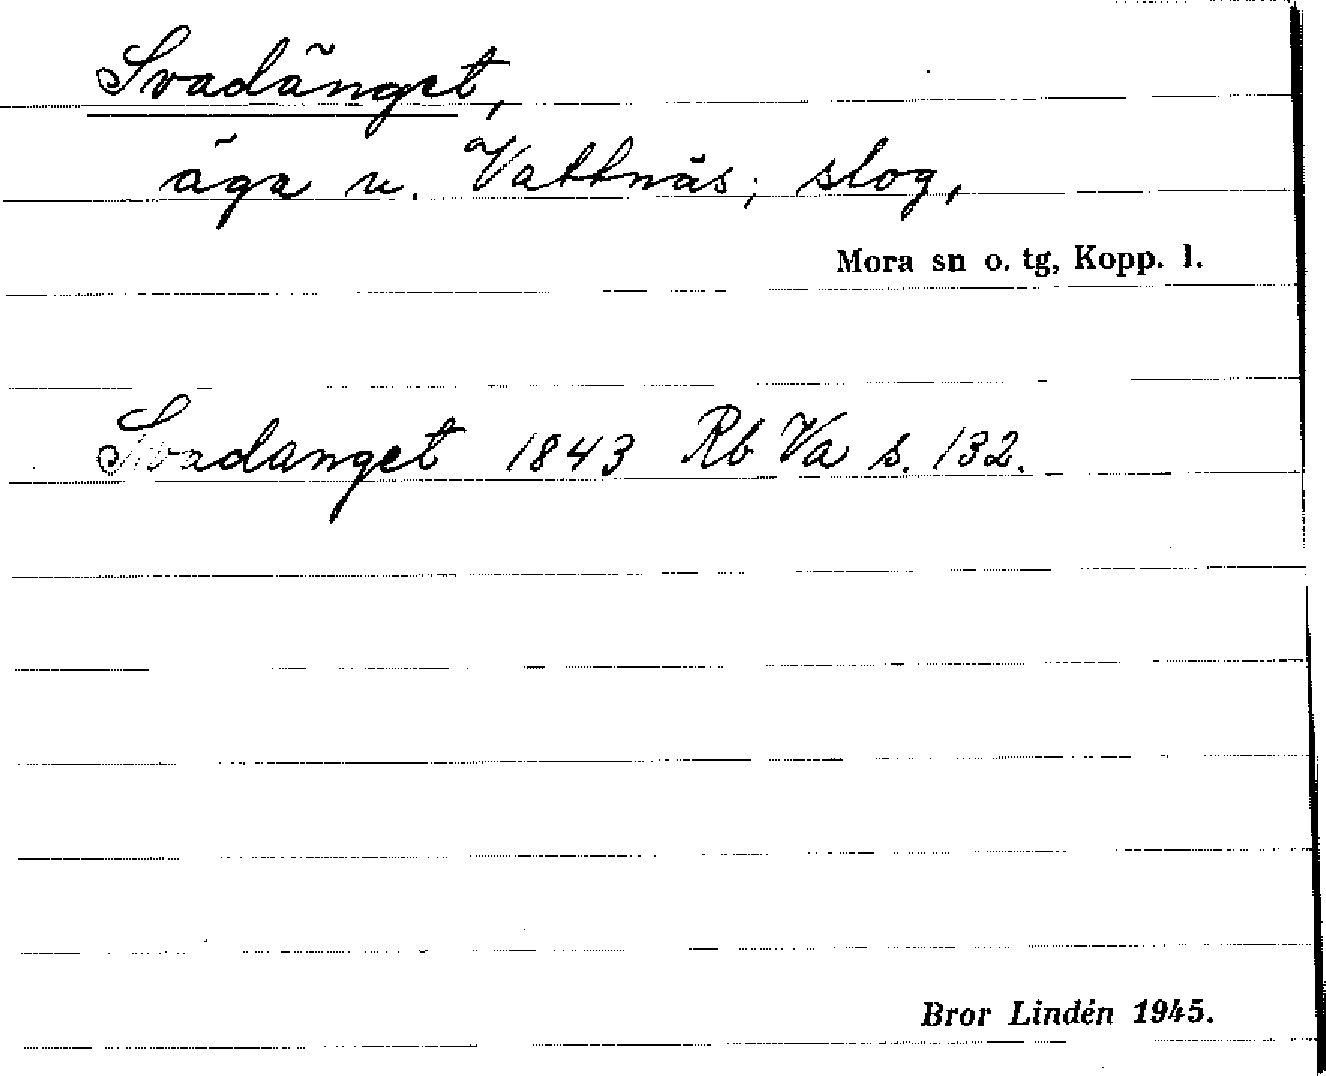 Svadänget,
äga u. Vattnäs; slog,
Mora sn o. tg, Kopp. l.
Svadanget 1843 Rb Va s. 132.
Bror Lindén 1945.